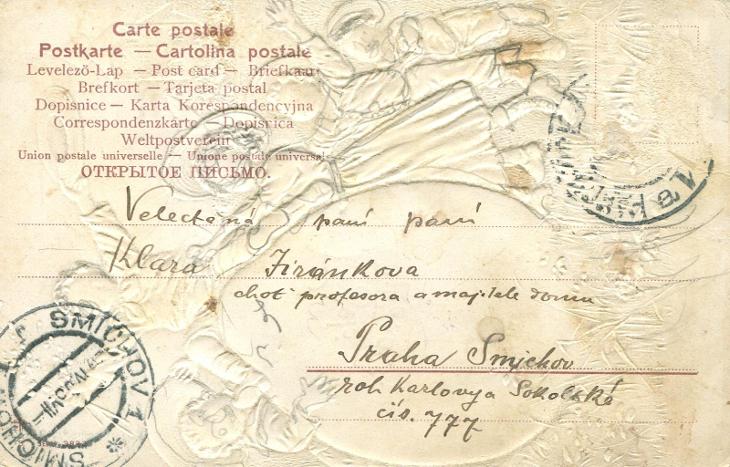 Carte postale
Postkarte — Cartolina postale
Levelező-Lap — Post card — Briefkaart
Brefkort — Tarjeta postal
Dopisnice — Karta Korespondencyjna
Correspondenzkarte — Dopisnica
Weltpostverein
Union postale universelle — Unione postale universale
ОТКРЫТОЕ ПИСЬМО.
Velectěná paní paní
Klara Jiránkova
choť profesora a majitele domu
Praha Smichov
roh Karlovy a Sokolské
čis. 777
SMICHOV 1
SMICHOV